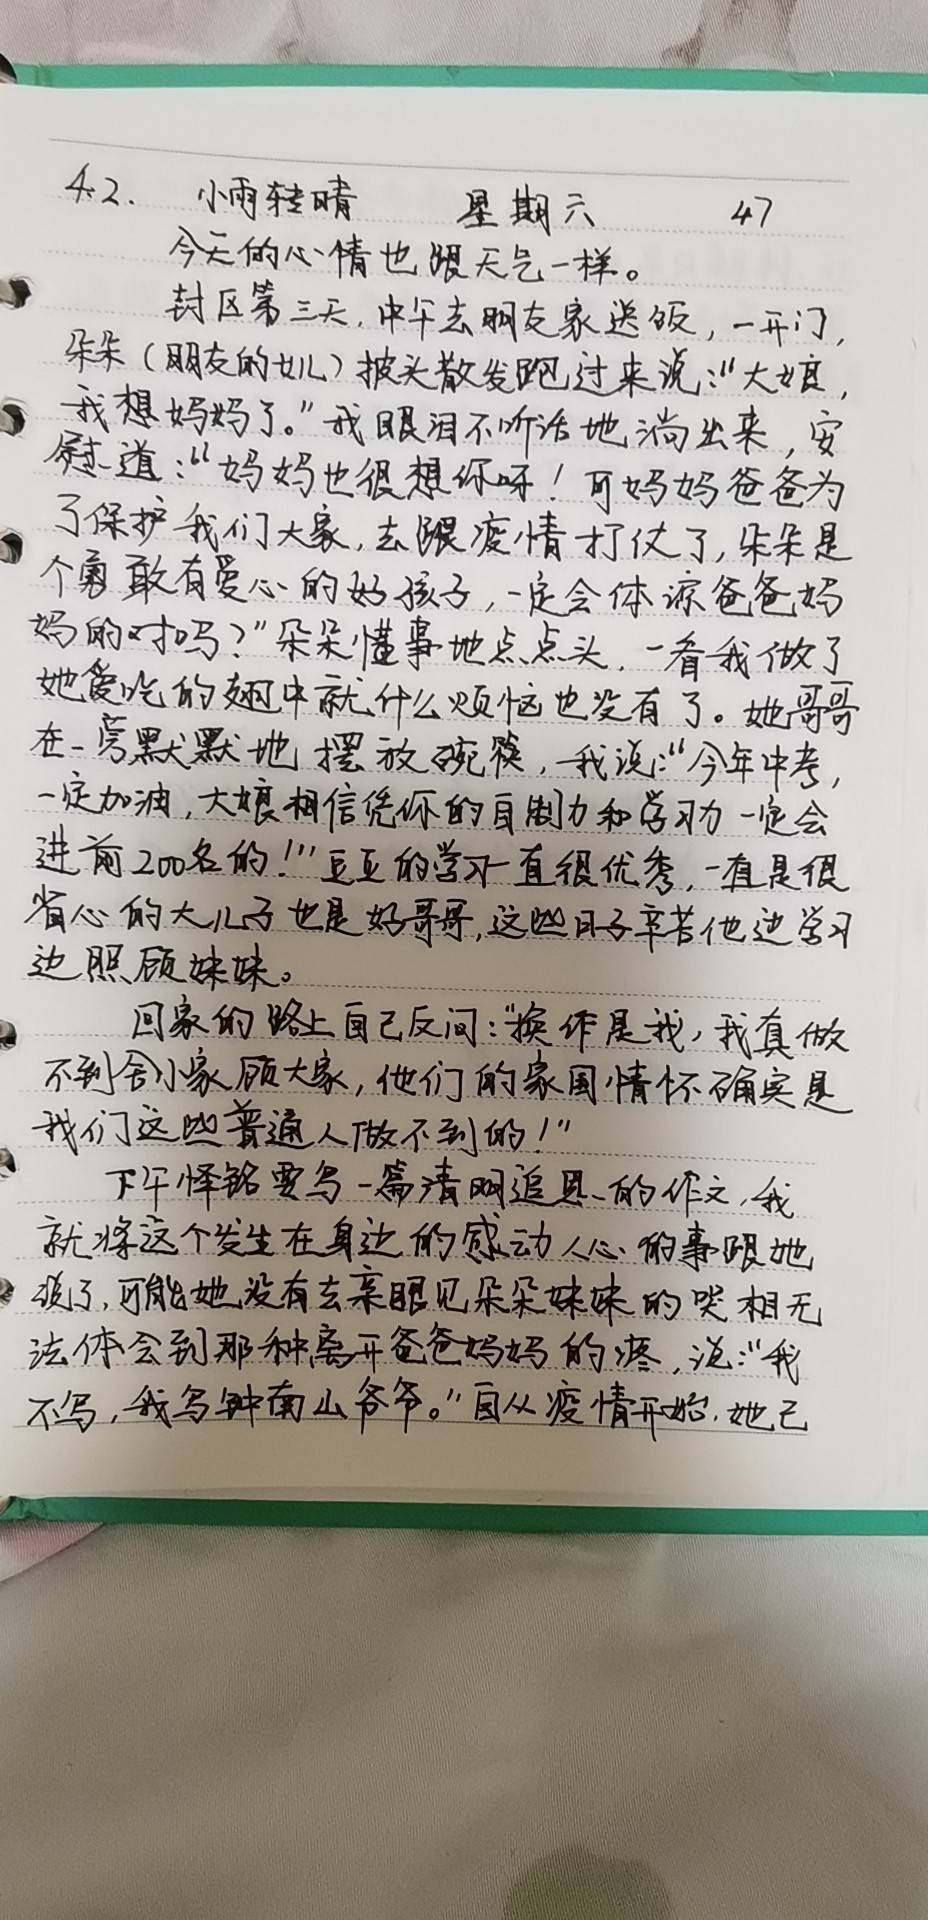 4.2. 小雨转晴 星期六 47
今天的心情也跟天气一样。
封区第三天,中午去朋友家送饭,一开门,
朵朵(朋友的女儿)披头散发跑过来说:“大娘,
我想妈妈了。”我眼泪不听话地淌出来,安
慰道:“妈妈也很想你呀!可妈妈爸爸为
了保护我们大家,去跟疫情打仗了,朵朵是
个勇敢有爱心的好孩子,一定会体谅爸爸妈
妈的对吗?”朵朵懂事地点点头,一看我做了
她爱吃的翅中就什么烦恼也没有了。她哥哥
在一旁默默地摆放碗筷,我说:“今年中考,
一定加油,大娘相信凭你的自制力和学习力一定会
进前200名的!”豆豆的学习一直很优秀,一直是很
省心的大儿子也是好哥哥,这些日子辛苦他边学习
边照顾妹妹。
回家的路上自己反问:“换作是我,我真做
不到舍小家顾大家,他们的家国情怀确实是
我们这些普通人做不到的!”
下午怿铭要写一篇清明追思的作文,我
就将这个发生在身边的感动人心的事跟她
说了,可能她没有去亲眼见朵朵妹妹的哭相无
法体会到那种离开爸爸妈妈的疼,说:“我
不写,我写钟南山爷爷。”自从疫情开始,她已